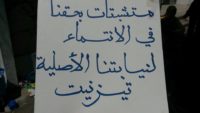 متشبثات بحقنا
في الانتماء
لنيابتنا الأصلية
تيزنيت